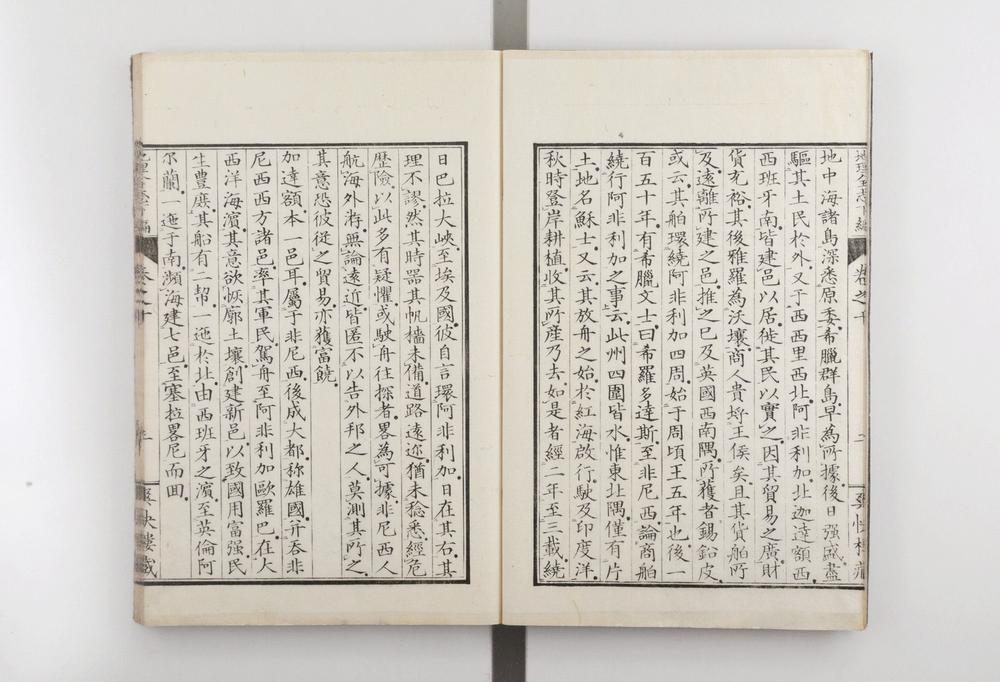 地理全志下編
卷之十
二
爽快樓藏
地中海諸島深悉原委希臘群島早為所據後日強盛盡
驅其土民於外又于西西里西北阿非利加北迦達額西
西班牙南皆建邑以居徙其民以實之因其貿易之廣財
貨充裕其後雅羅為沃壤商人貴埒王侯矣且其貨舶所
及遠離所建之邑推之已及英國西南隅所獲者錫鉛皮
或云其舶環繞阿非利加四周始于周頃王五年也後一
百五十年有希臘文士曰希羅多達斯至非尼西論商舶
繞行阿非利加之事云此州四圍皆水惟東北隅僅有片
土地名穌士又云其放舟之始於紅海啟行駛及印度洋
秋時登岸耕植收其所產乃去如是者經二年至三載繞
日巴拉大峽至埃及國彼自言環阿非利加日在其右其
理不謬然其時器其帆檣未備道路遠迩猶未稔悉經危
歷險以此多有疑懼或駛舟往探者畧為可據非尼西人
航海外將無論遠近皆匿不以告外邦之人莫測其所之
其意恐彼從之貿易亦獲富饒
加達額本一邑耳屬于非尼西後成大都称雄國并吞非
尼西西方諸邑率其軍民駕舟至阿非利加歐羅巴在大
西洋海濱其意欲恢廓土壤創建新邑以致國用富强民
生豐庶其船有二幫一迤於北由西班牙之濱至英倫阿
尔蘭一迤于南瀕海建七邑至塞拉畧尼而回
卷之十